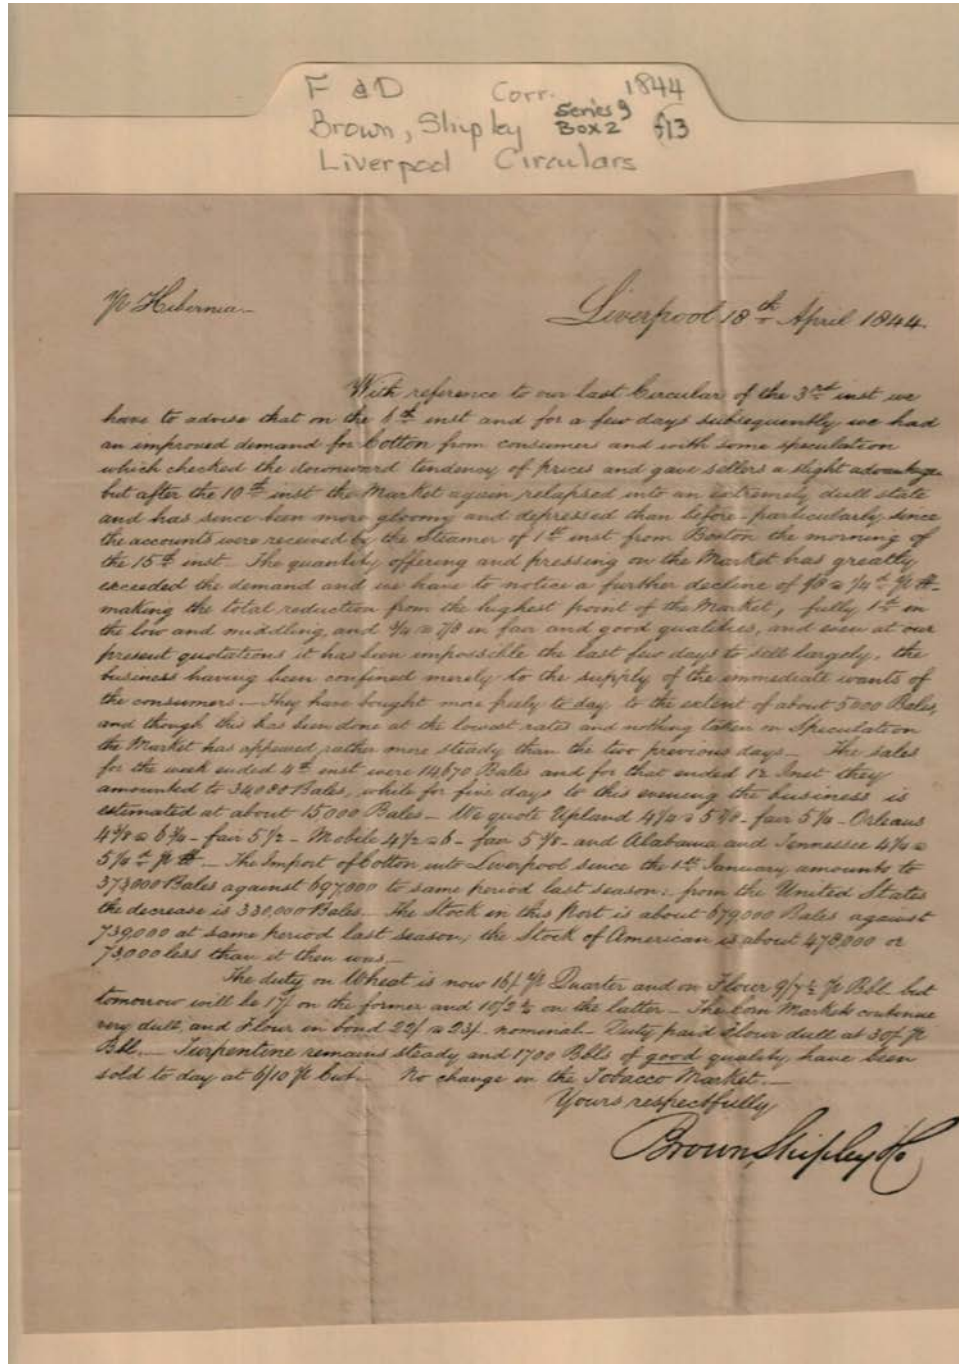 F & D Corr. 1844
Brown, Shipley Series 9 Box 2 f13
Liverpool Circulars
P Hibernia
Liverpool 18th April 1844.
With reference to our last Circular of the 3rd inst we
have to advise that on the 6th inst and for a few days subsequently we had
an improved demand for Cotton from consumers and with some speculation
which checked the downward tendency of prices and gave sellers a slight advantage
but after the 10th inst the Market again relapsed into an extremely dull state
and has since been more gloomy and depressed than before - particularly since
the accounts were received by the Steamer of 1st inst from Boston the morning of
the 15th inst - The quantity offering and pressing on the Market has greatly
exceeded the demand and we have to notice a further decline of 1/8 a 1/4d P lb -
making the total reduction from the highest point of the Market, fully 1d in
the low and middling, and 3/4 a 7/8 in fair and good qualities, and even at our
present quotations it has been impossible the last few days to sell largely, the
business having been confined merely to the supply of the immediate wants of
the consumers. - They have bought more freely to day to the extent of about 5000 Bales,
and though this has been done at the lowest rates and nothing taken on Speculation
the Market has appeared rather more steady than the two previous days - The sales
for the week ended 4th inst were 14670 Bales and for that ended 12 Inst they
amounted to 34080 Bales, while for five days to this evening the business is
estimated at about 15,000 Bales - We quote Upland 4 1/4 a 5 7/8 - fair 5 1/4 - Orleans
a 6 3/4 - fair 5 1/2 - Mobile 4 1/2 a 6 - fair - and Alabama and Tennessee 4 1/4 a
5 1/4d P lb. - The Import of Cotton into Liverpool since the 1st January amounts to
373,000 Bales against 697,000 to same period last season: from the United States
the decrease is 330,000 Bales - The Stock in this Port is about 679,000 Bales against
739,000 at same period last season, the Stock of American is about 478,000 or
73,000 less than it then was. -
The duty on Wheat is now 16/ P Quarter and on Flour 9/7 1/2 P Bbl - but
tomorrow will be 17/ on the former and 10/2 1/2 on the latter - The Corn Markets continue
very dull, and Flour in bond 22/ a 23/ nominal - Duty paid Flour dull at 30/ P
Bbl. - Turpentine remains steady and 1700 Bbls of good quality have been
sold to day at 6/10 P Cwt. - No change in the Tobacco Market. -
Yours respectfully
Brown Shipley & Co